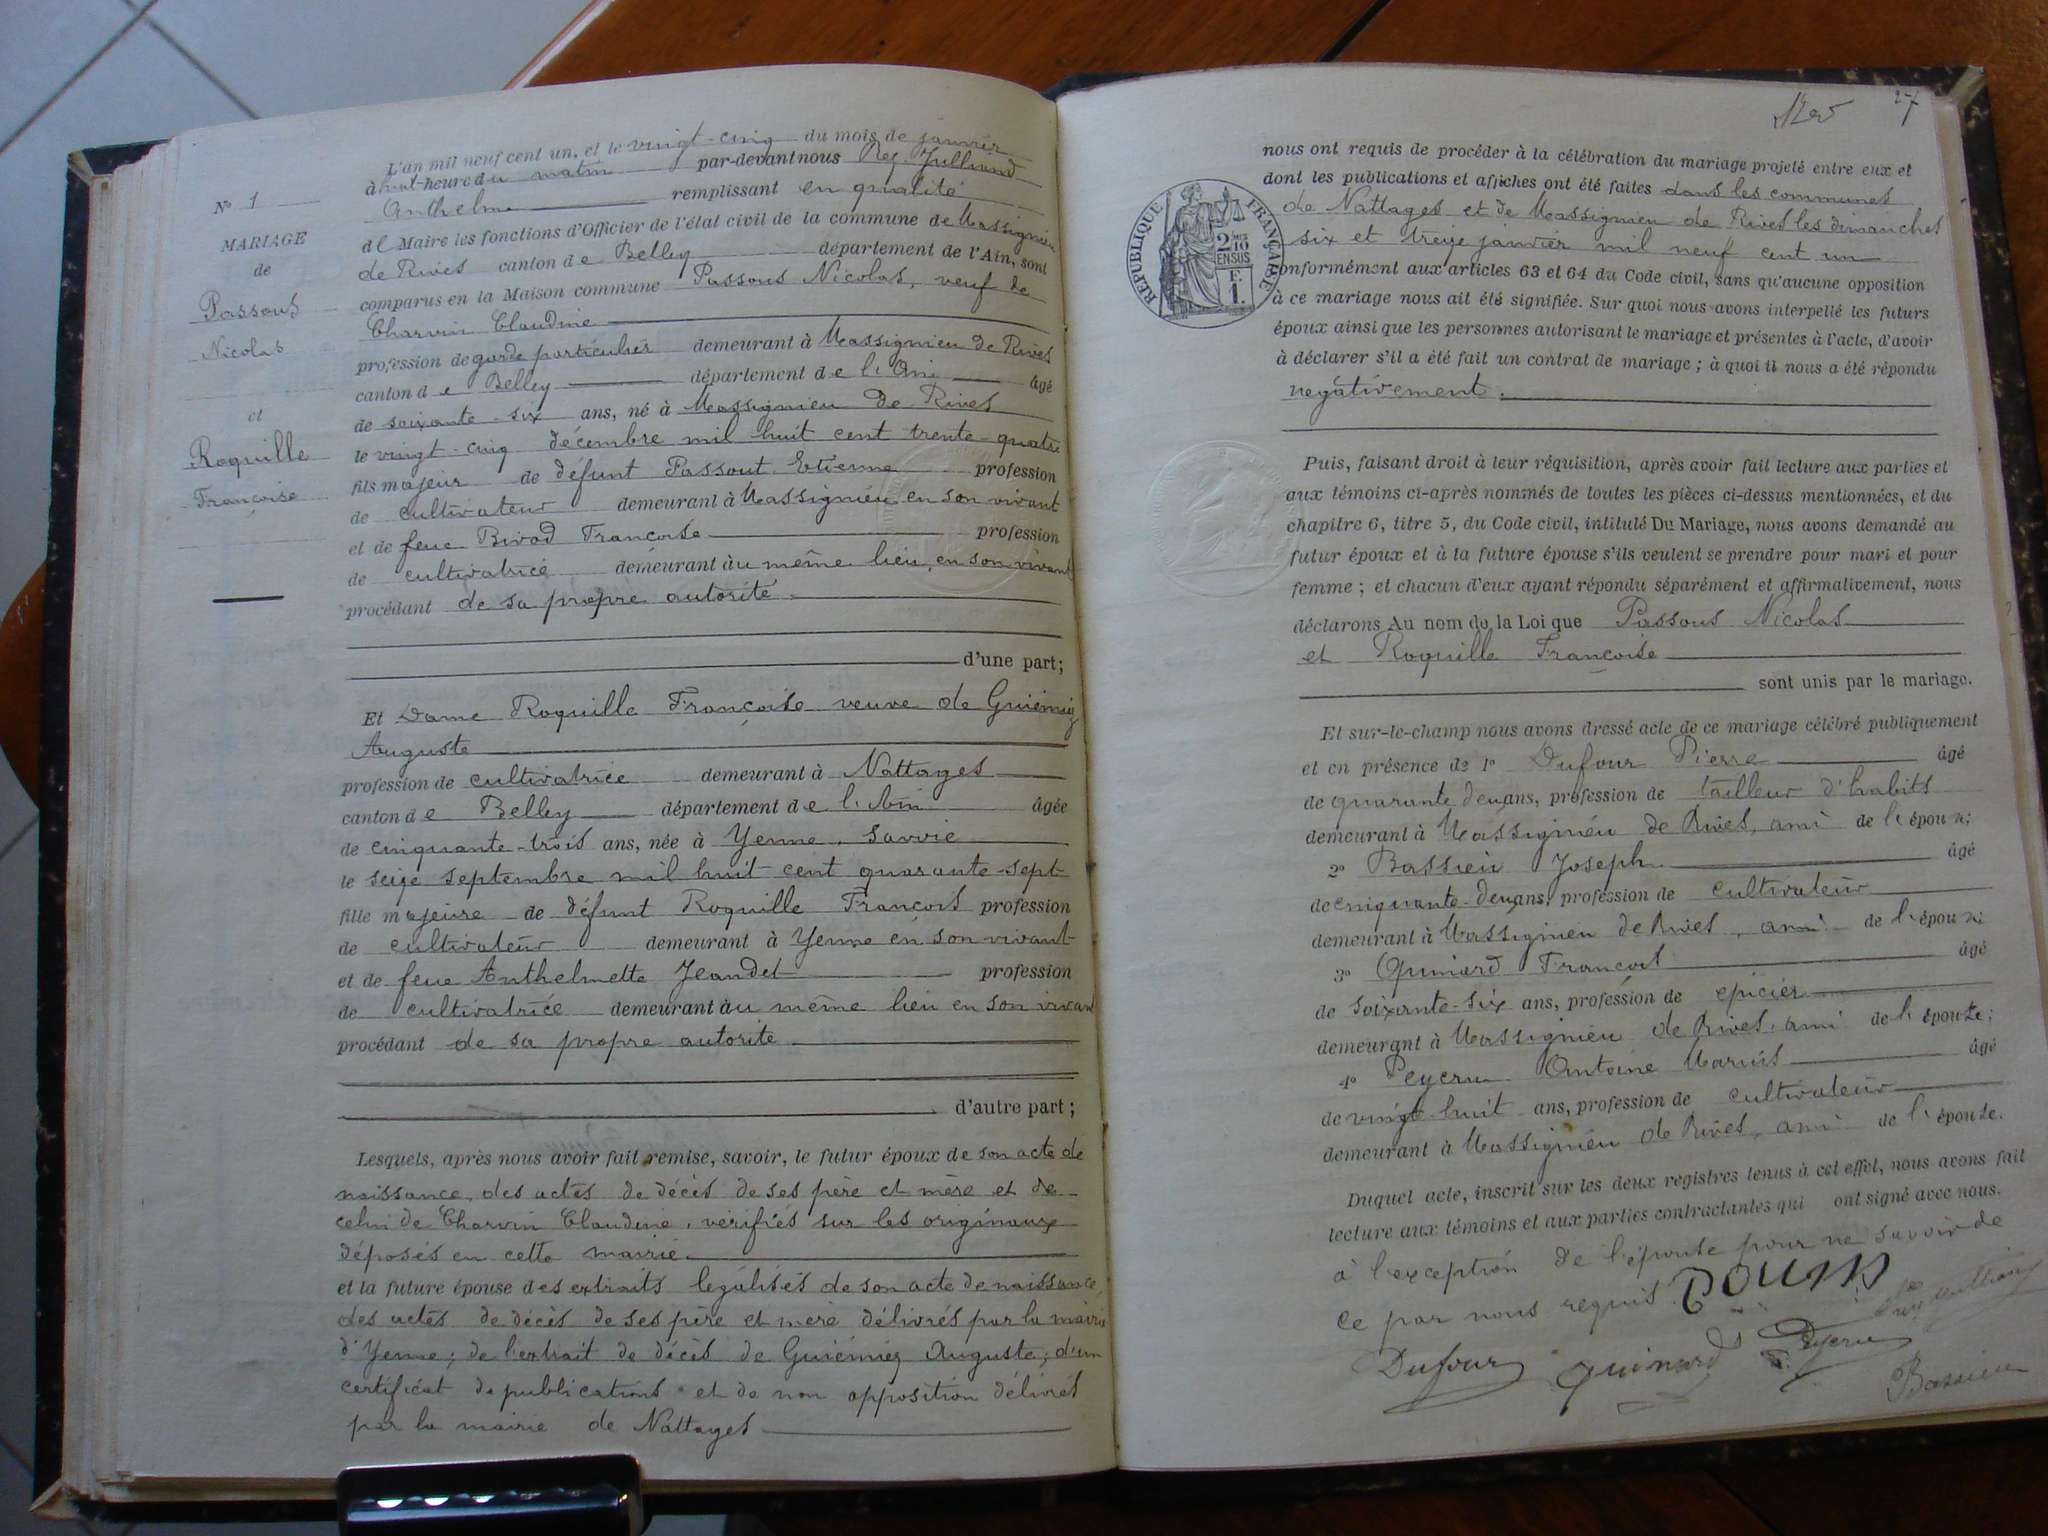 L'an mil neuf cent un, et le vingt-cinq du mois de janvier
à huit heure du matin par-devant nous Rey-Julliand
Anthelme remplissant en qualité
de Maire les fonctions d'Officier de l'état civil de la commune de Massignieu
de Rives canton de Belley département de l'Ain, sont
comparus en la Maison commune Passous Nicolas, veuf de
Charvin Claudine
profession de garde particulier demeurant à Massignieu de Rives
canton de Belley département de l'Ain âgé
de soixante-six ans, né à Massignieu de Rives
le vingt-cinq décembre mil huit cent trente-quatre
fils majeur de défunt Passout Etienne profession
de cultivateur demeurant à Massignieu en son vivant
et de feue Françoise profession
de cultivatrice demeurant au même lieu, en son vivant
procédant de sa propre autorité
d'une part;
Et Dame Roquille Françoise veuve de Guiémiez
Auguste
profession de cultivatrice demeurant à Nattages
canton de Belley département de l'Ain âgée
de cinquante-trois ans, née à Yenne, Savoie
le seize septembre mil huit cent quarante-sept
fille majeure de défunt Roquille François profession
de cultivateur demeurant à Yenne en son vivant
et de feue Anthelmette Jeandet profession
de cultivatrice demeurant au même lieu en son vivant
procédant de sa propre autorité
d'autre part;
Lesquels, après nous avoir fait remise, savoir, le futur époux de son acte de
naissance, des actes de décès de ses père et mère et de
celui de Charvin Claudine, vérifiés sur les originaux
déposés en cette mairie
et la future épouse des extraits légalisés de son acte de naissance,
des actes de décès de ses père et mère délivrés par la mairie
d'Yenne; de l'extrait de décès de Guiémiez Auguste; d'un
certificat de publications et de non opposition délivrés
par la mairie de Nattages
N° 1
MARIAGE
de
Passous
Nicolas
et
Roquille
Françoise
27
nous ont requis de procéder à la célébration du mariage projeté entre eux et
dont les publications et affiches ont été faites dans les communes
de Nattages et de Massignieu de Rives les dimanches
six et treize janvier mil neuf cent un
conformément aux articles 63 et 64 du Code civil, sans qu'aucune opposition
à ce mariage nous ait été signifiée. Sur quoi nous avons interpellé les futurs
époux ainsi que les personnes autorisant le mariage et présentes à l'acte, d'avoir
à déclarer s'il a été fait un contrat de mariage; à quoi il nous a été répondu
négativement.
Puis, faisant droit à leur réquisition, après avoir fait lecture aux parties et
aux témoins ci-après nommés de toutes les pièces ci-dessus mentionnées, et du
chapitre 6, titre 5, du Code civil, intitulé Du Mariage, nous avons demandé au
futur époux et à la future épouse s'ils veulent se prendre pour mari et pour
femme; et chacun d'eux ayant répondu séparément et affirmativement, nous
déclarons Au nom de la Loi que Passous Nicolas
et Roquille Françoise
sont unis par le mariage.
Et sur-le-champ nous avons dressé acte de ce mariage célébré publiquement
et en présence de 1° Dufour Pierre âgé
de quarante deux ans, profession de tailleur d'habits
demeurant à Massignieu de Rives, ami de l'époux;
2° Bassieu Joseph âgé
de cinquante-deux ans, profession de cultivateur
demeurant à Massignieu de Rives, ami de l'époux;
3° Guinard François âgé
de soixante-six ans, profession de épicier
demeurant à Massignieu de Rives, ami de l'épouse;
4° Peycru Antoine Marius âgé
de vingt huit ans, profession de cultivateur
demeurant à Massignieu de Rives, ami de l'épouse.
Duquel acte, inscrit sur les deux registres tenus à cet effet, nous avons fait
lecture aux témoins et aux parties contractantes qui ont signé avec nous.
à l'exception de l'épouse pour ne savoir de
ce par nous requis.
Dufour Guinard Peycru Bassieu
RÉPUBLIQUE FRANÇAISE
2 10
EN SUS
F.
1.